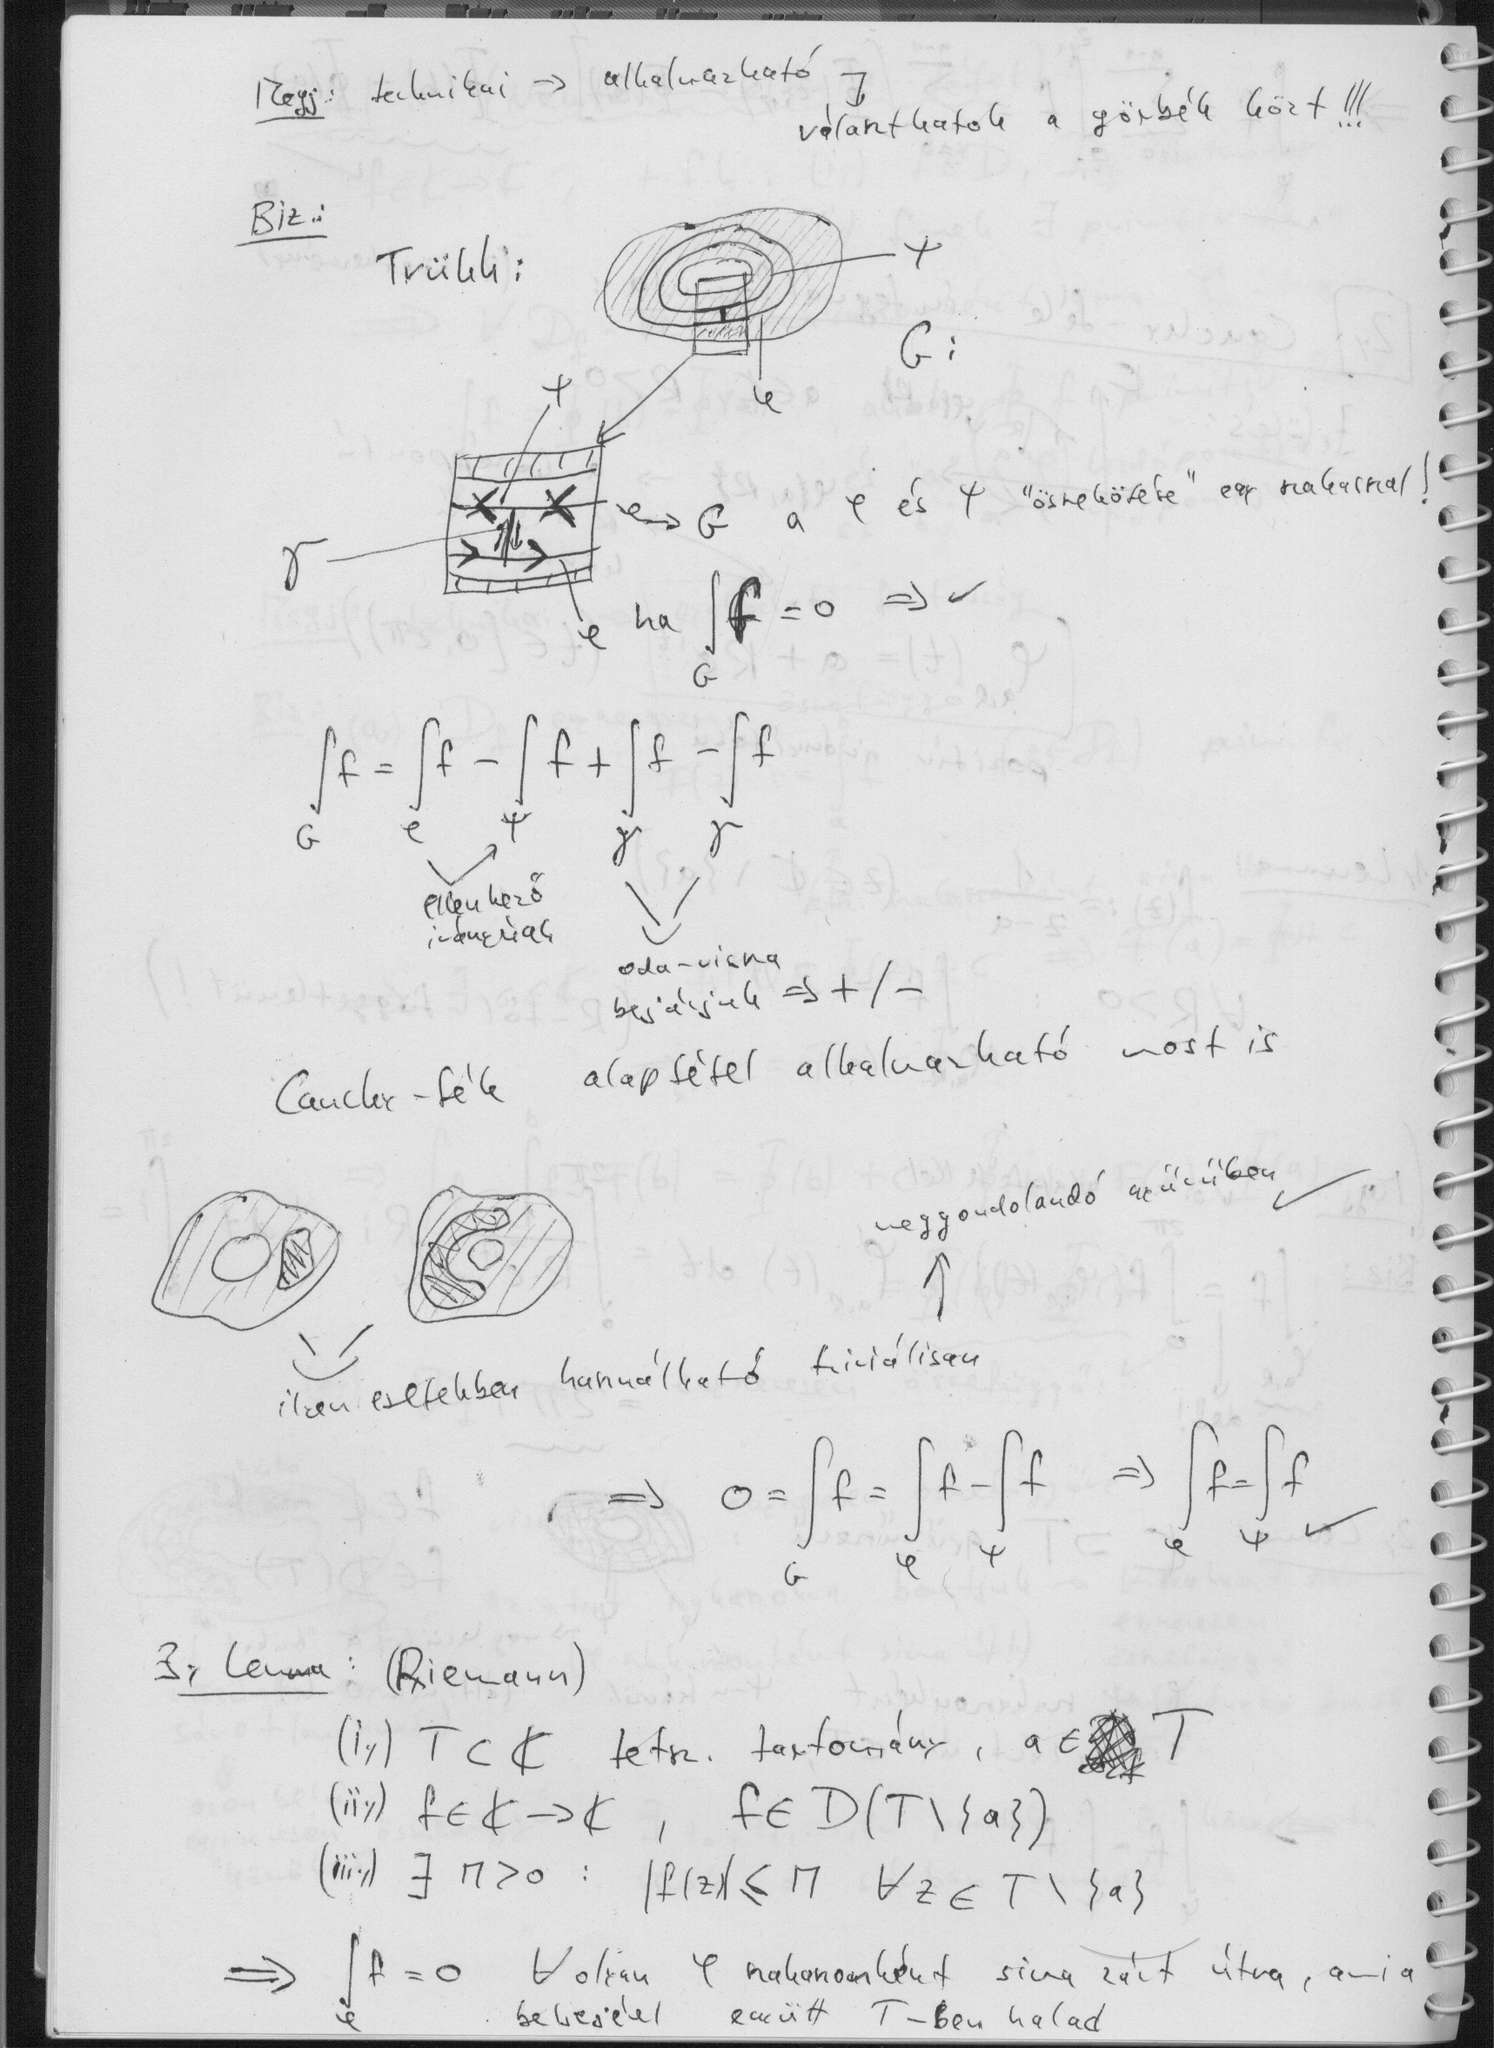 Megj: technikai → alkalmazható →
választhatok a görbék közt!!!
Biz.:
Trükk:
ψ
G:
φ
ψ
φ → G a φ és ψ "összekötése" egy szakasszal!
γ
φ
ha ∫_G f = 0 ⇒ ✓
∫_G f = ∫_φ f - ∫_ψ f + ∫_γ f - ∫_γ f
ellenkező
irányúak
oda-vissza
bejárjuk ⇒ + / -
Cauchy-féle alaptétel alkalmazható most is
meggondolandó gyűrűben ✓
ilyen esetekben használható triviálisan
⇒ 0 = ∫_G f = ∫_φ f - ∫_ψ f ⇒ ∫_φ f = ∫_ψ f ✓
3, Lemma: (Riemann)
(i,) T ⊂ ℂ tetsz. tartomány, a ∈ T
(ii,) f ∈ ℂ → ℂ, f ∈ D(T\{a})
(iii,) ∃ M > 0 : |f(z)| ≤ M ∀ z ∈ T \ {a}
⇒ ∫_φ f = 0 ∀ olyan φ szakaszonként sima zárt útra, ami a
belsejével együtt T-ben halad